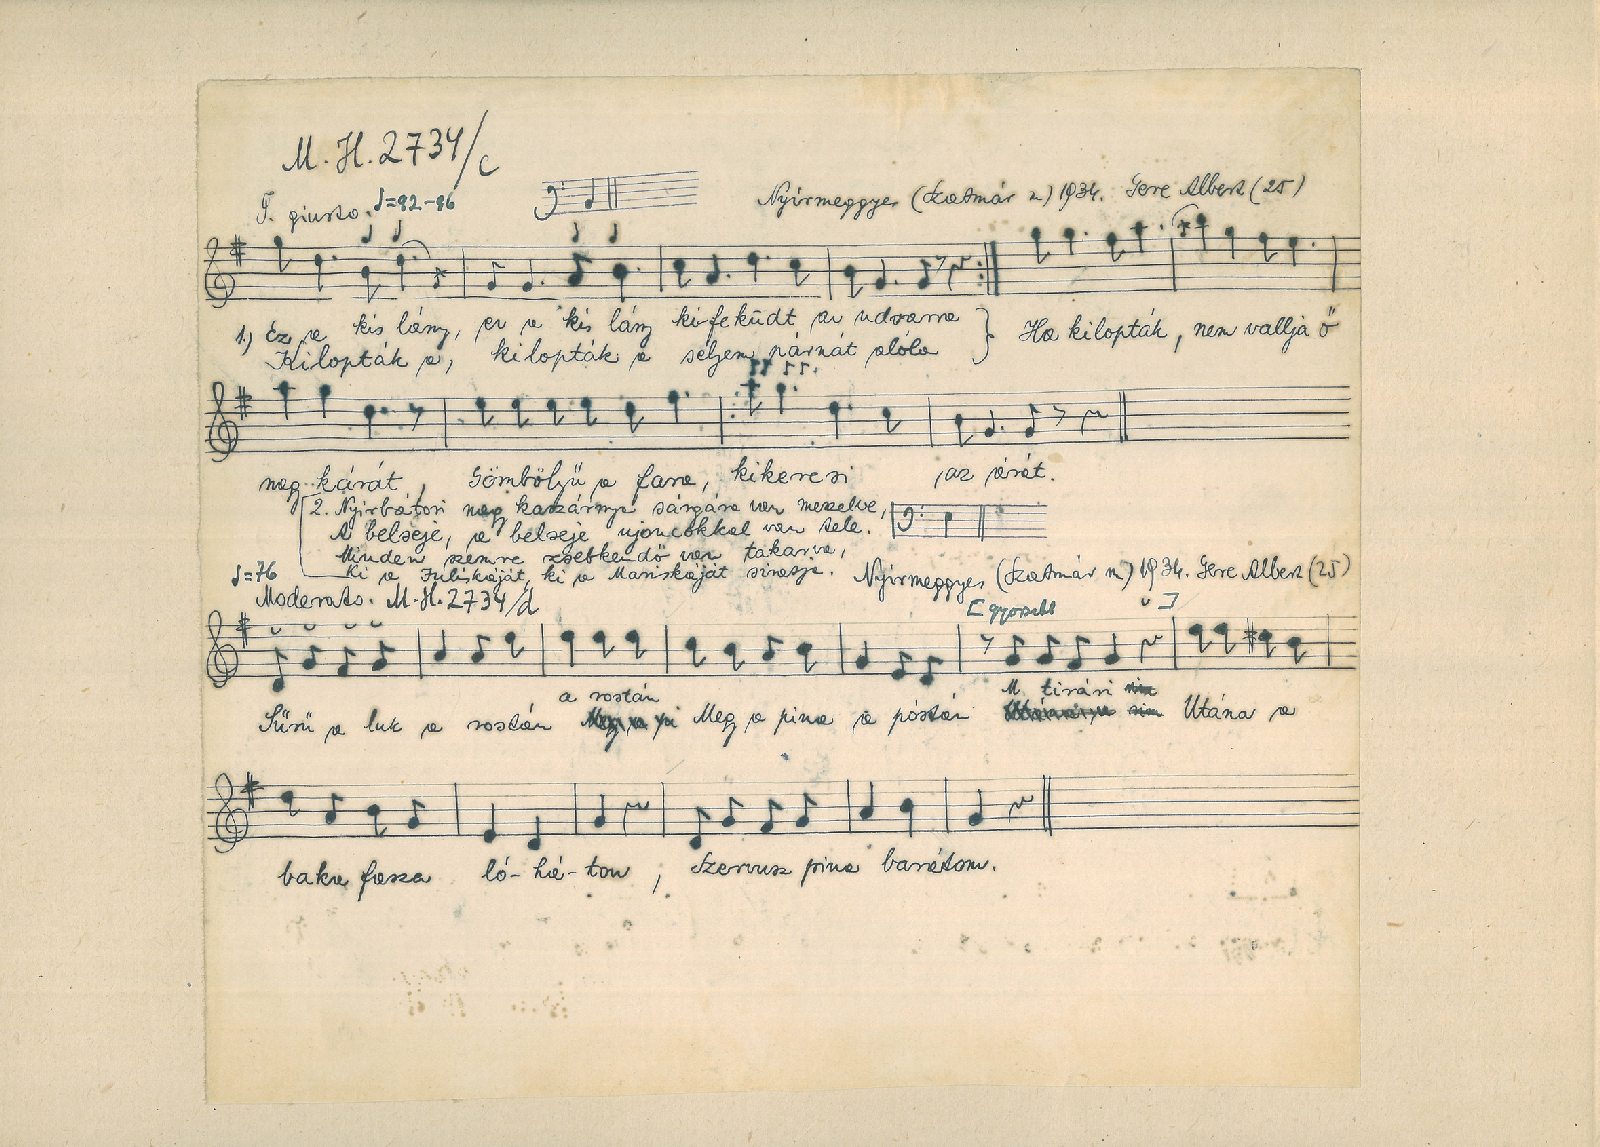 M. H. 2734/c
T. giusto. ♩=92-96
Nyírmeggyes (Szatmár m) 1934. Gere Albert (25)
1.) Ez a kis lány, ez a kis lány ki-feküdt az udvarra } Ha kilopták, nem vallja ő
Kilopták a, kilopták a selyem párnát alóla
nagy kárát, Gömbölyű a fara, kikeresi az árát.
2. Nyírbátori nagy kaszárnya sárgára van meszelve,
A belseje, a belseje ujoncokkal van tele.
Minden szemre zsebkendő van takarva,
Ki a Juliskáját, ki a Mariskáját siratja.
Nyírmeggyes (Szatmár m) 1934. Gere Albert (25)
♩=76
Moderato. M. H. 2734/d
[gyorsabb ]
a rostán
M. tirári
Sűrű a luk a rostán Meg a pina a póstán Utána a
baka fasza ló-há-ton, Szervusz pina barátom.